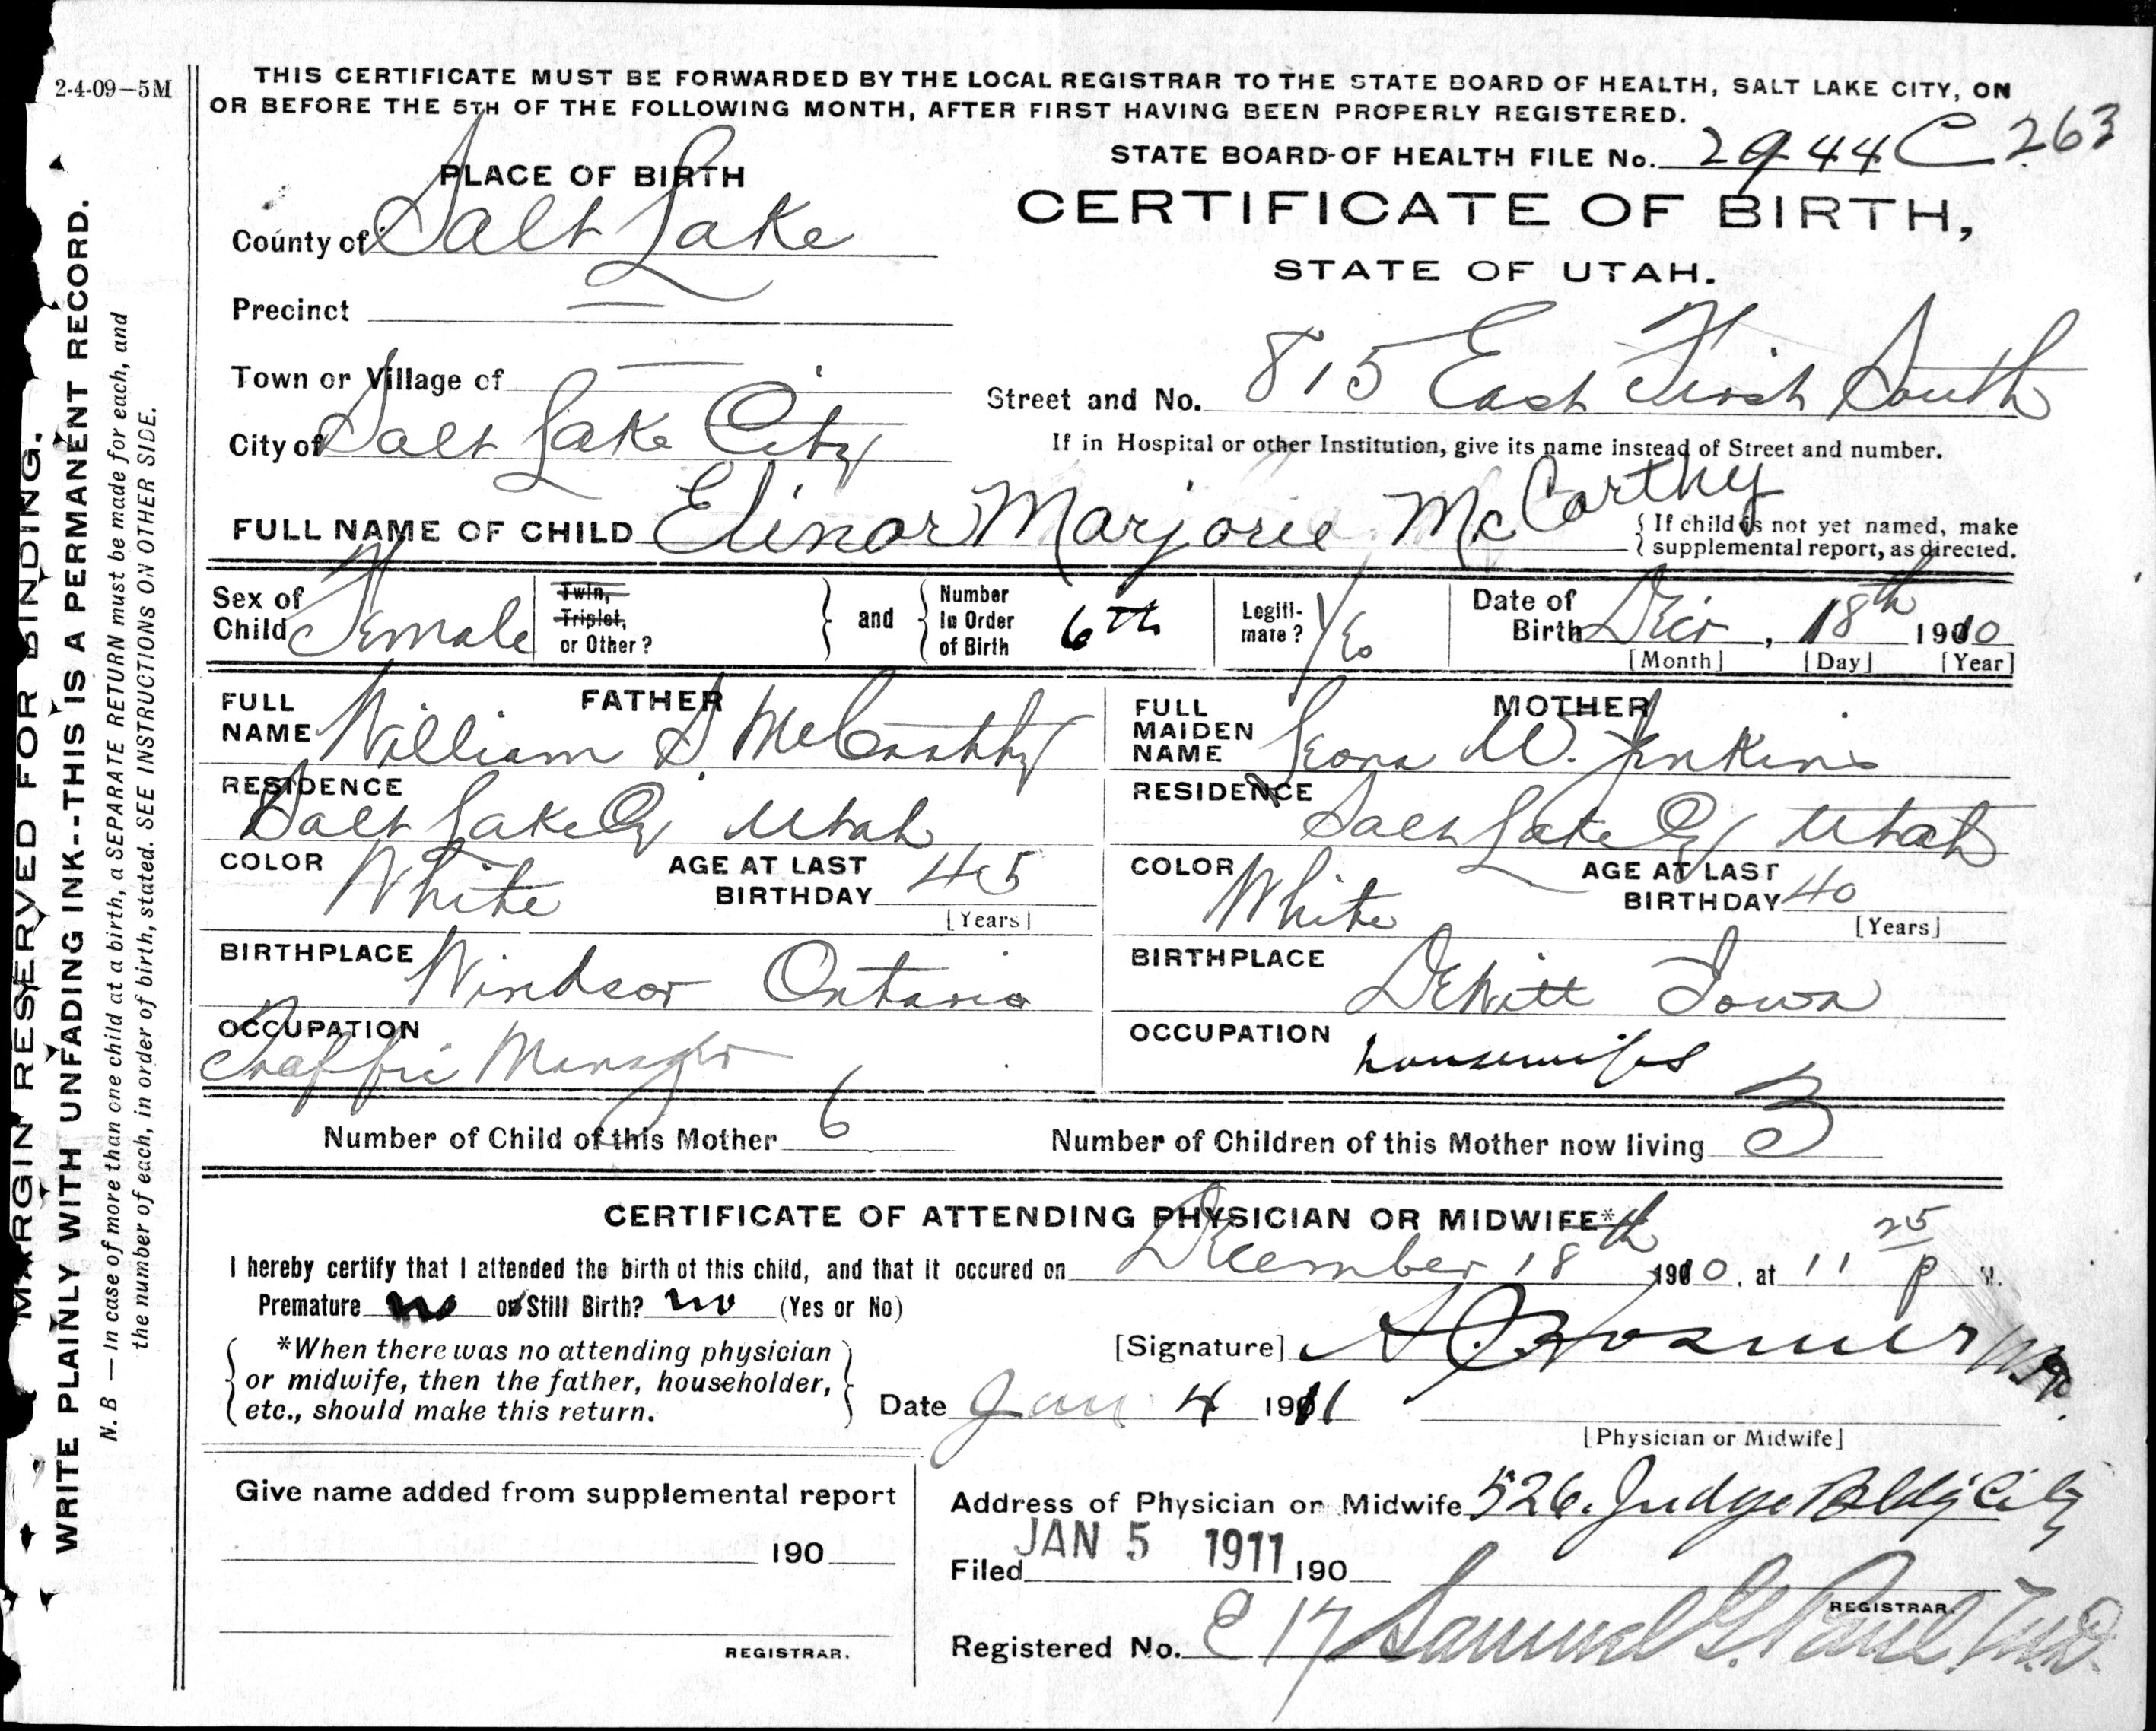 2-4-09—5M
THIS CERTIFICATE MUST BE FORWARDED BY THE LOCAL REGISTRAR TO THE STATE BOARD OF HEALTH, SALT LAKE CITY, ON
OR BEFORE THE 5TH OF THE FOLLOWING MONTH, AFTER FIRST HAVING BEEN PROPERLY REGISTERED.
STATE BOARD OF HEALTH FILE No. 2944 C 263
PLACE OF BIRTH
CERTIFICATE OF BIRTH,
STATE OF UTAH.
County of Salt Lake
Precinct —
Town or Village of —
Street and No. 815 East First South
City of Salt Lake City
If in Hospital or other Institution, give its name instead of Street and number.
FULL NAME OF CHILD Elinor Marjorie McCarthy
If child is not yet named, make
supplemental report, as directed.
Sex of Child Female
Twin, Triplet, or Other?
and
Number In Order of Birth 6th
Legitimate? Yes
Date of Birth Dec, 18th 1910
[Month] [Day] [Year]
FATHER
FULL NAME William S McCarthy
MOTHER
FULL MAIDEN NAME Leona W. Jenkins
RESIDENCE Salt Lake Cy Utah
RESIDENCE Salt Lake Cy Utah
COLOR White AGE AT LAST BIRTHDAY 45 [Years]
COLOR White AGE AT LAST BIRTHDAY 40 [Years]
BIRTHPLACE Windsor Ontario
BIRTHPLACE DeWitt Iowa
OCCUPATION Traffic Manager
OCCUPATION housewife
Number of Child of this Mother 6
Number of Children of this Mother now living 3
CERTIFICATE OF ATTENDING PHYSICIAN OR MIDWIFE*
I hereby certify that I attended the birth of this child, and that it occured on December 18th 1910, at 11 25 P M.
Premature no or Still Birth? no (Yes or No)
*When there was no attending physician
or midwife, then the father, householder,
etc., should make this return.
[Signature]
Date Jan 4 1911
[Physician or Midwife]
Give name added from supplemental report
190
REGISTRAR.
Address of Physician or Midwife 526 Judge Bldg City
Filed JAN 5 1911 190
REGISTRAR.
Registered No. C 17 Samuel G. Paul, M.D.
MARGIN RESERVED FOR BINDING.
WRITE PLAINLY WITH UNFADING INK--THIS IS A PERMANENT RECORD.
N. B — In case of more than one child at a birth, a SEPARATE RETURN must be made for each, and
the number of each, in order of birth, stated. SEE INSTRUCTIONS ON OTHER SIDE.